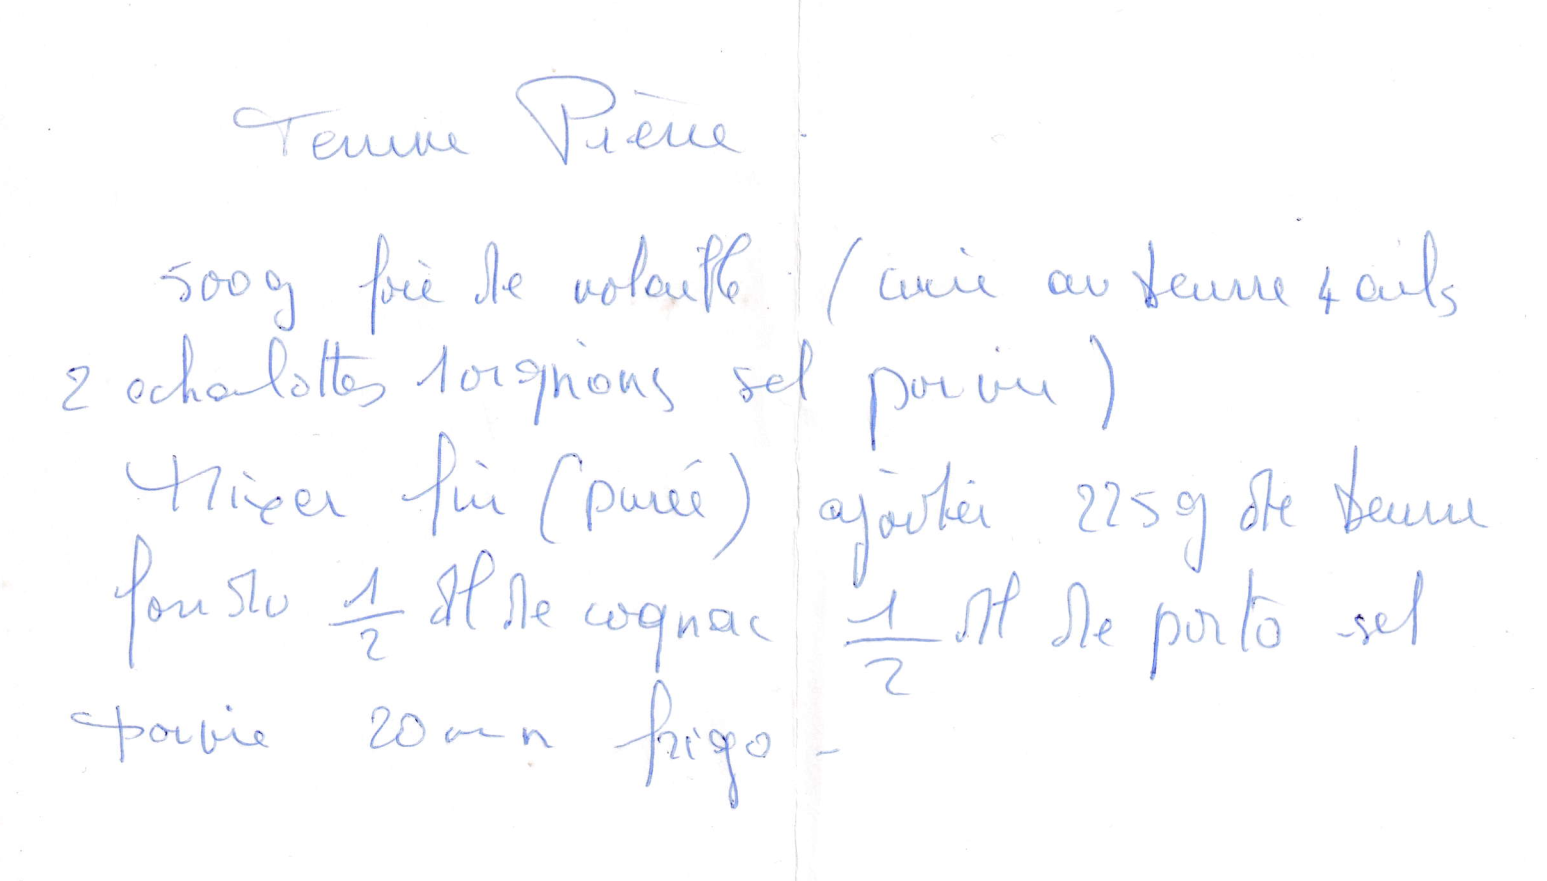 Terrine Pierre
500g foie de volaille (cuire au beurre 4 ails
2 echalottes 1 oignons sel poivre)
Mixer fin (purée) ajouter 225g de beurre
fondu 1/2 dl de cognac 1/2 dl de porto sel
poivre 20mn frigo -